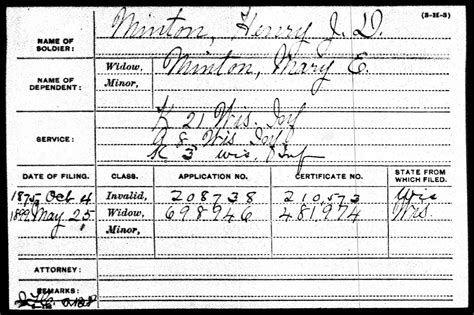 (3-H-3)
NAME OF SOLDIER: Minton, Henry J. D.
NAME OF DEPENDENT: Widow, Minton, Mary E.
Minor,
SERVICE: K 21 Wis. Inf
8 Wis Inf.
K 3 Wis, Inf
DATE OF FILING. CLASS. APPLICATION NO. CERTIFICATE NO. STATE FROM WHICH FILED.
1875, Oct 4 Invalid, 208738 210,573 Wis
1899, May 25 Widow, 698946 481974 Wis.
Minor,
ATTORNEY:
REMARKS: